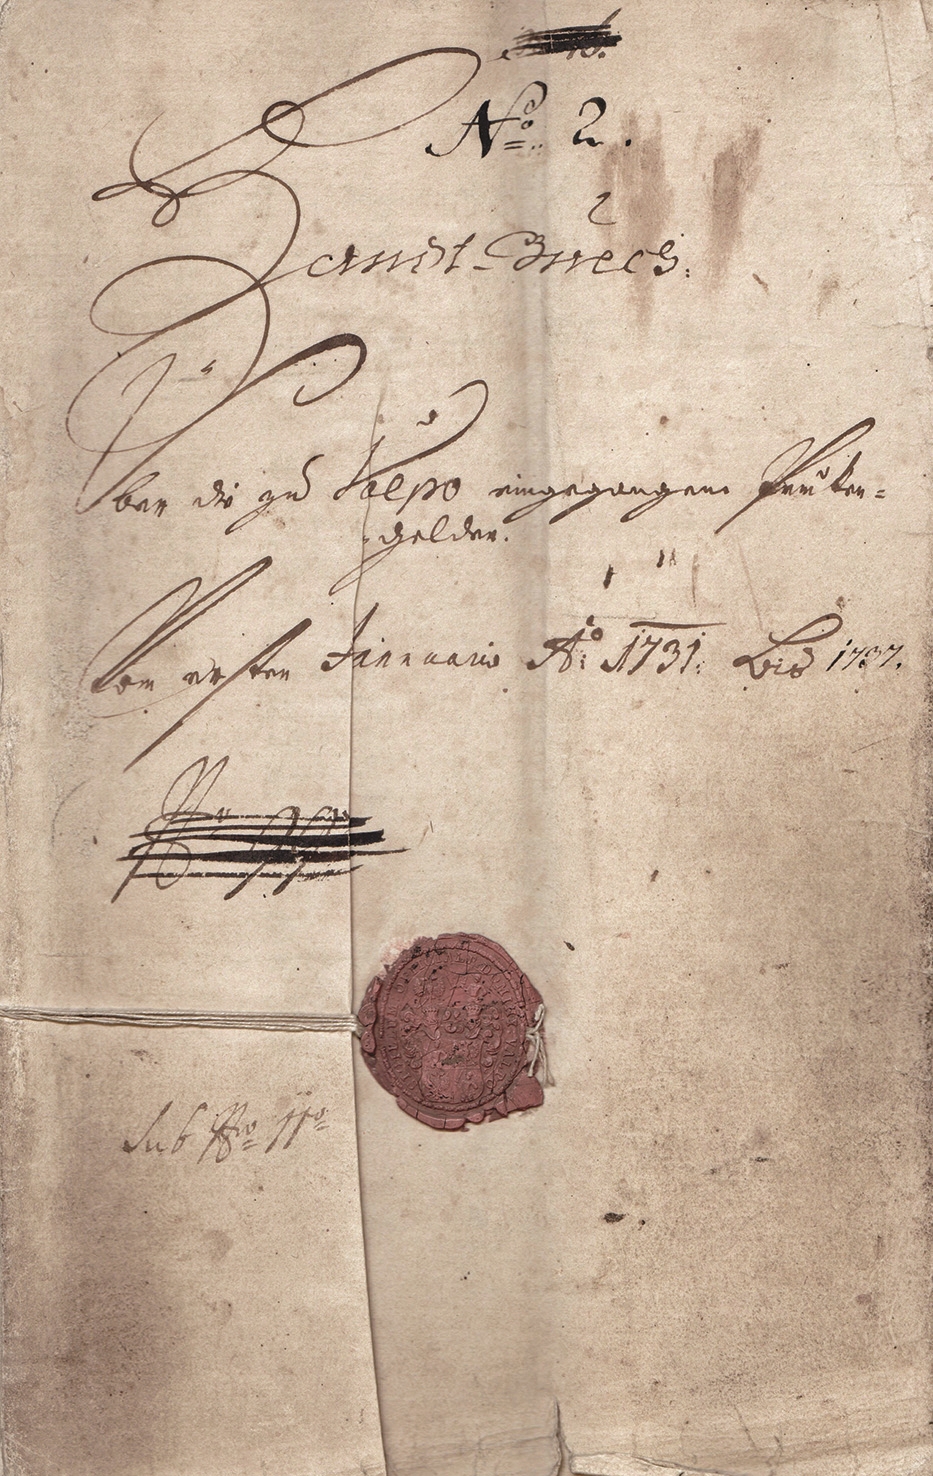 No. 2.
Handt-Buech.
Über die zu Valpo eingegangene Pruken=
gelder.
Vom ersten Januario Ao: 1731. Bis 1737.
Sub No 11o